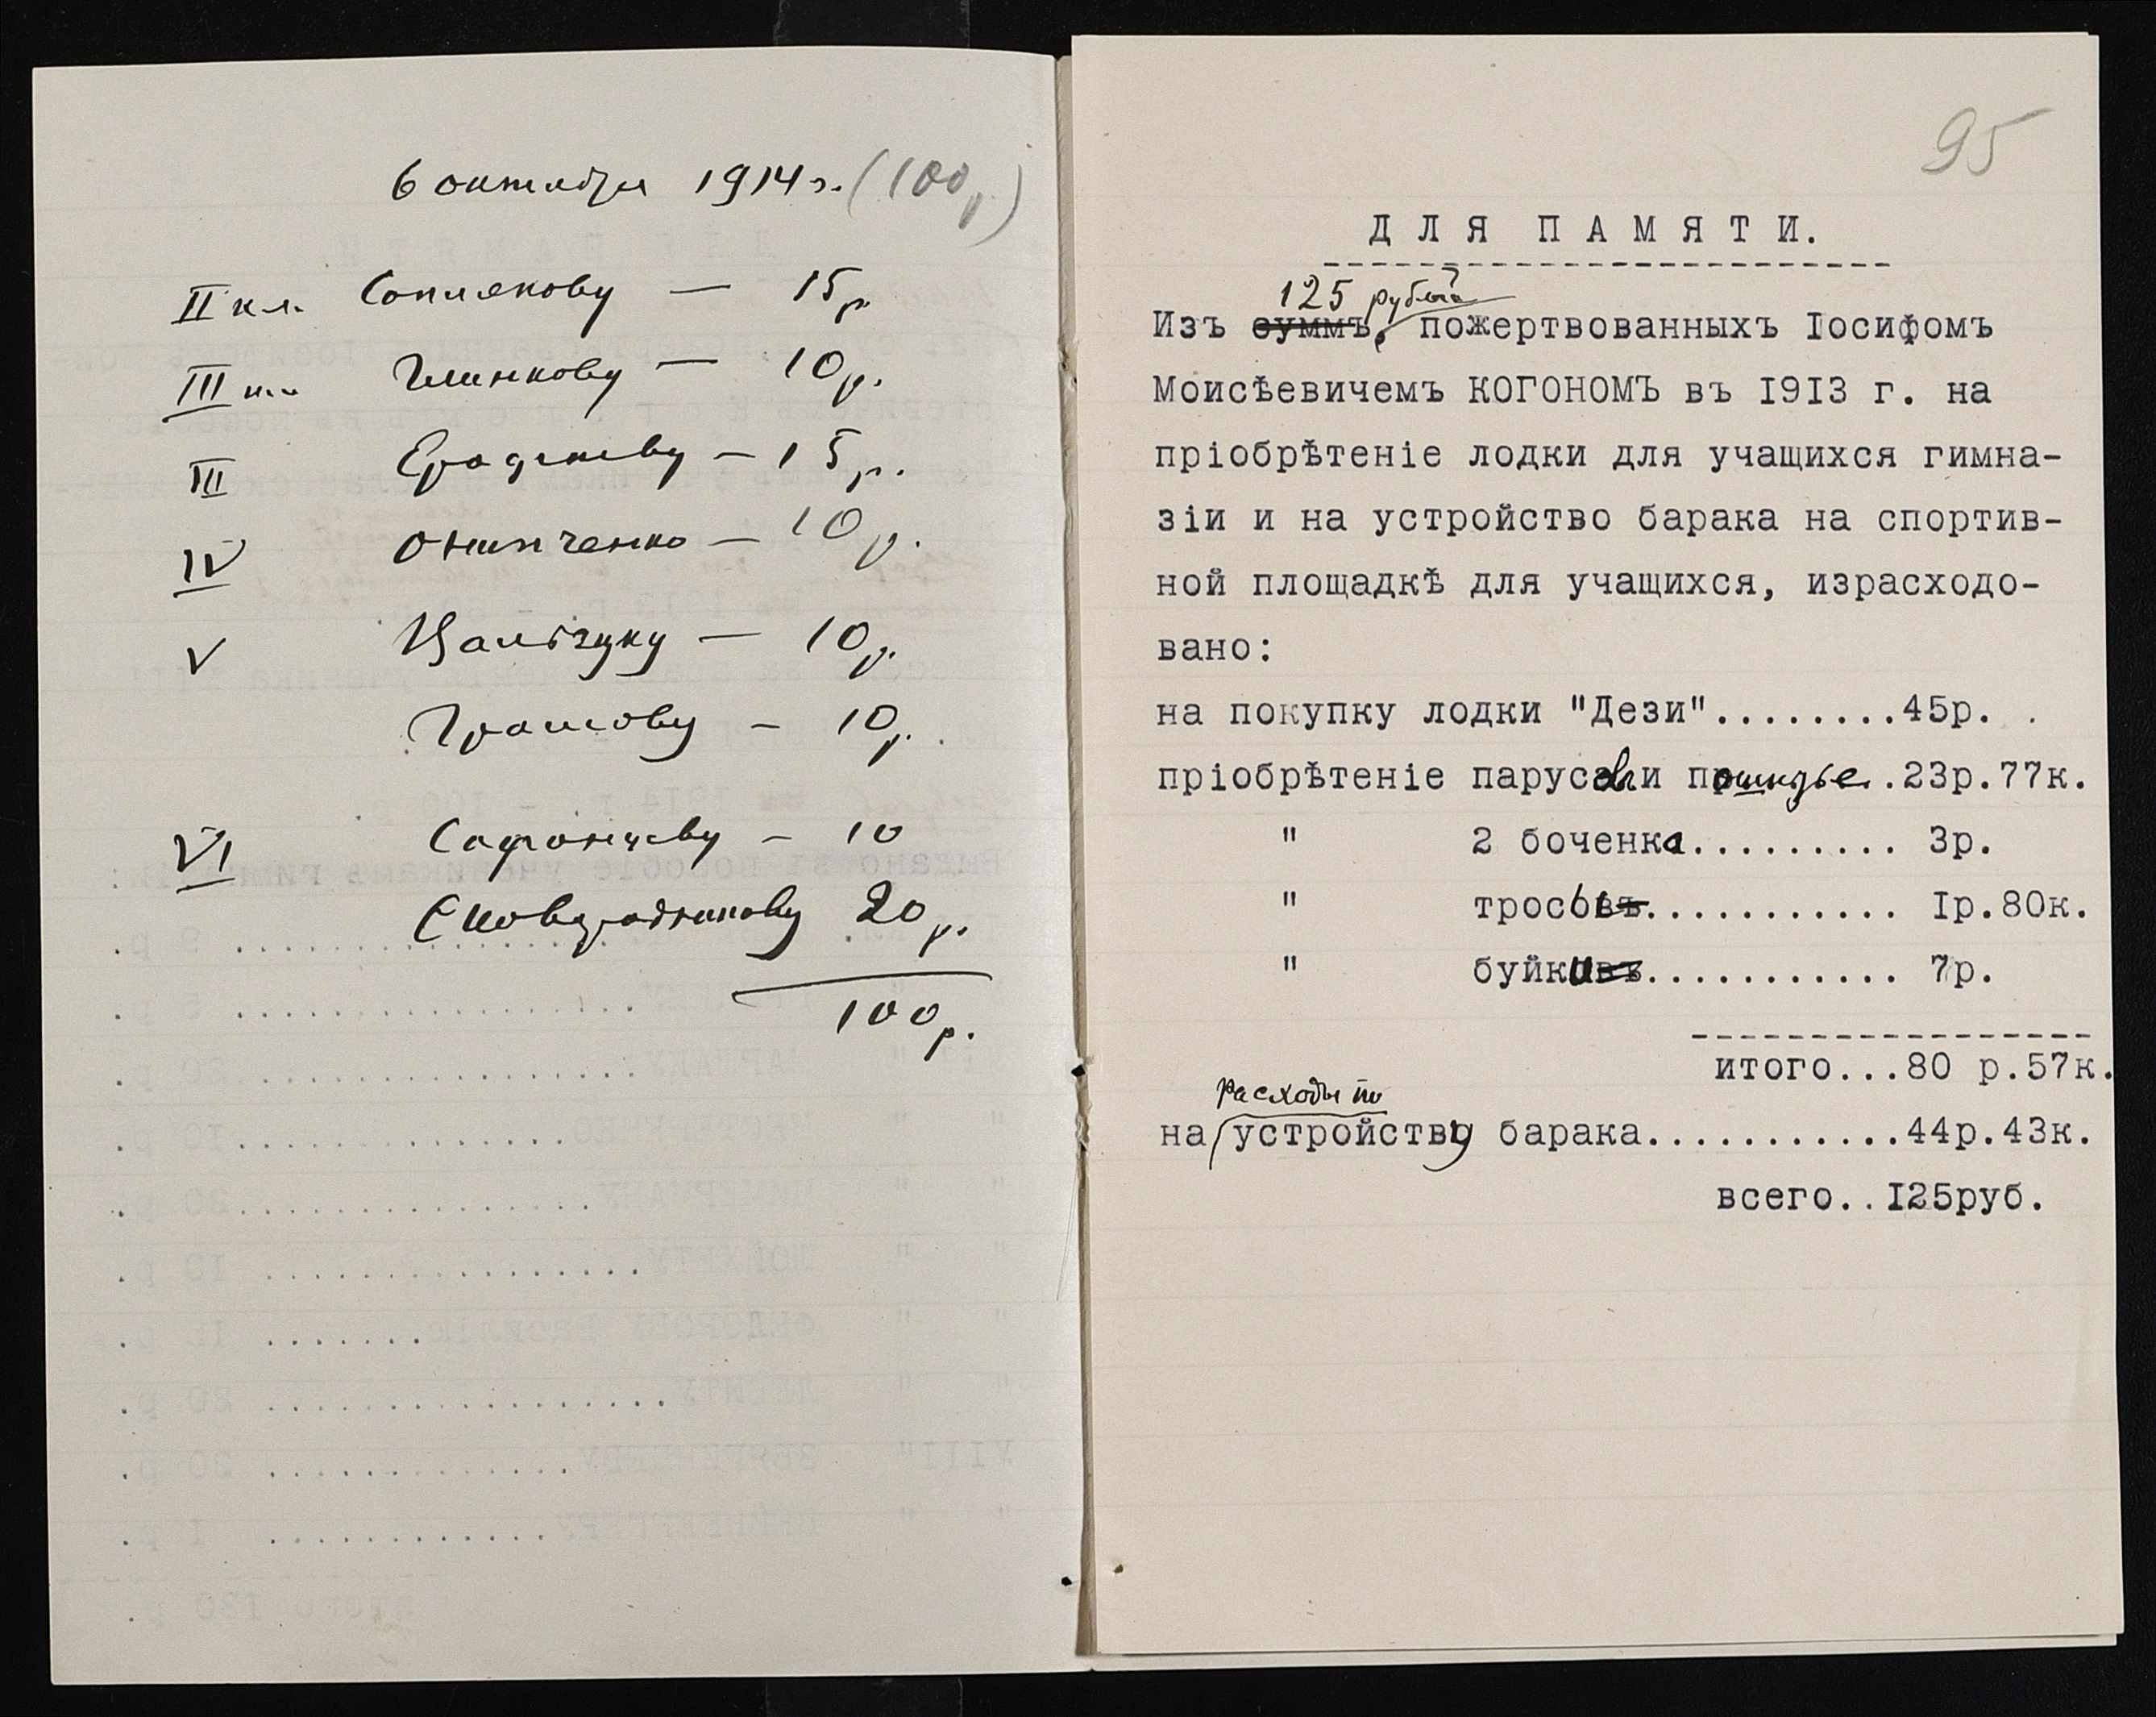 6 октября 1914 г. (100 р)
II кл. Соплякову — 15 р.
III кл. Глинкову — 10 р.
III — 15 р.
IV Онипченко — 10 р.
V — 10 р.
Громову — 10 р.
VI Сафонцеву — 10
Сковородникову 20 р.
100 р.
95
ДЛЯ ПАМЯТИ.
125 рублей
Изъ суммъ, пожертвованныхъ Іосифомъ
Моисѣевичемъ КОГОНОМЪ въ 1913 г. на
пріобрѣтеніе лодки для учащихся гимна-
зіи и на устройство барака на спортив-
ной площадкѣ для учащихся, израсходо-
вано:
на покупку лодки "Дези"........45р.
пріобрѣтеніе паруса и ..23р.77к.
" 2 боченка......... 3р.
" тросовъ........... 1р.80к.
" буйки........... 7р.
итого...80 р.57к.
расходы по
на устройству барака...........44р.43к.
всего..125руб.